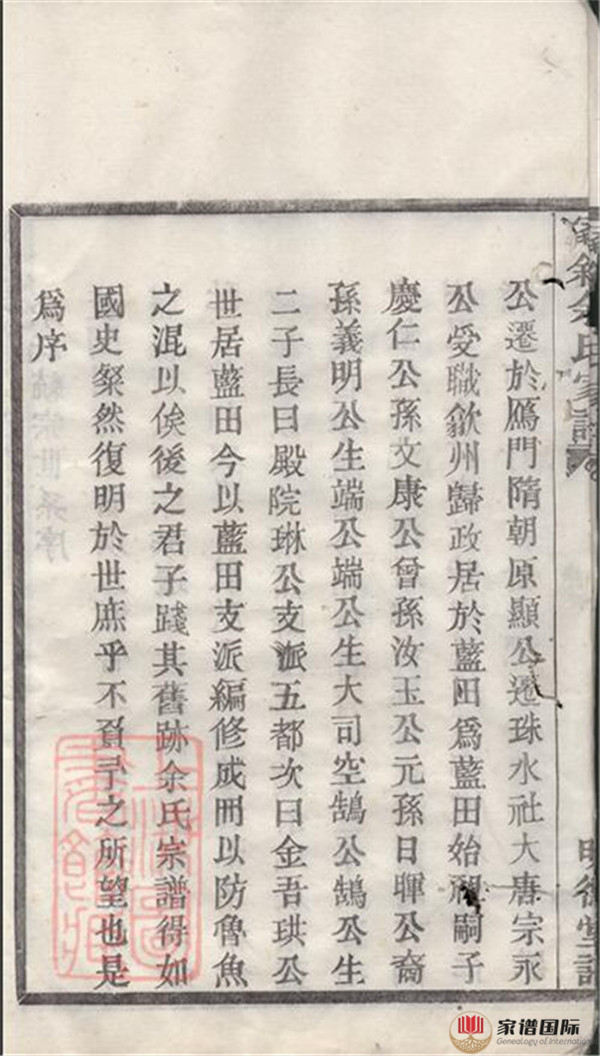 余氏家譜
公遷於鴈門隋朝原顯公遷珠水社大唐宗永
公受職歙州歸政居於藍田為藍田始祖嗣子
慶仁公孫文康公曾孫汝玉公元孫日暉公裔
孫義明公生端公端公生大司空鵠公鵠公生
二子長曰殿院琳公支派五都次曰金吾珙公
世居藍田今以藍田支派編修成冊以防魯魚
之混以俟後之君子踐其舊跡余氏宗譜得如
國史粲然復明於世庶乎不負予之所望也是
為序
上海圖書館藏
家谱国际
Genealogy of Internatio